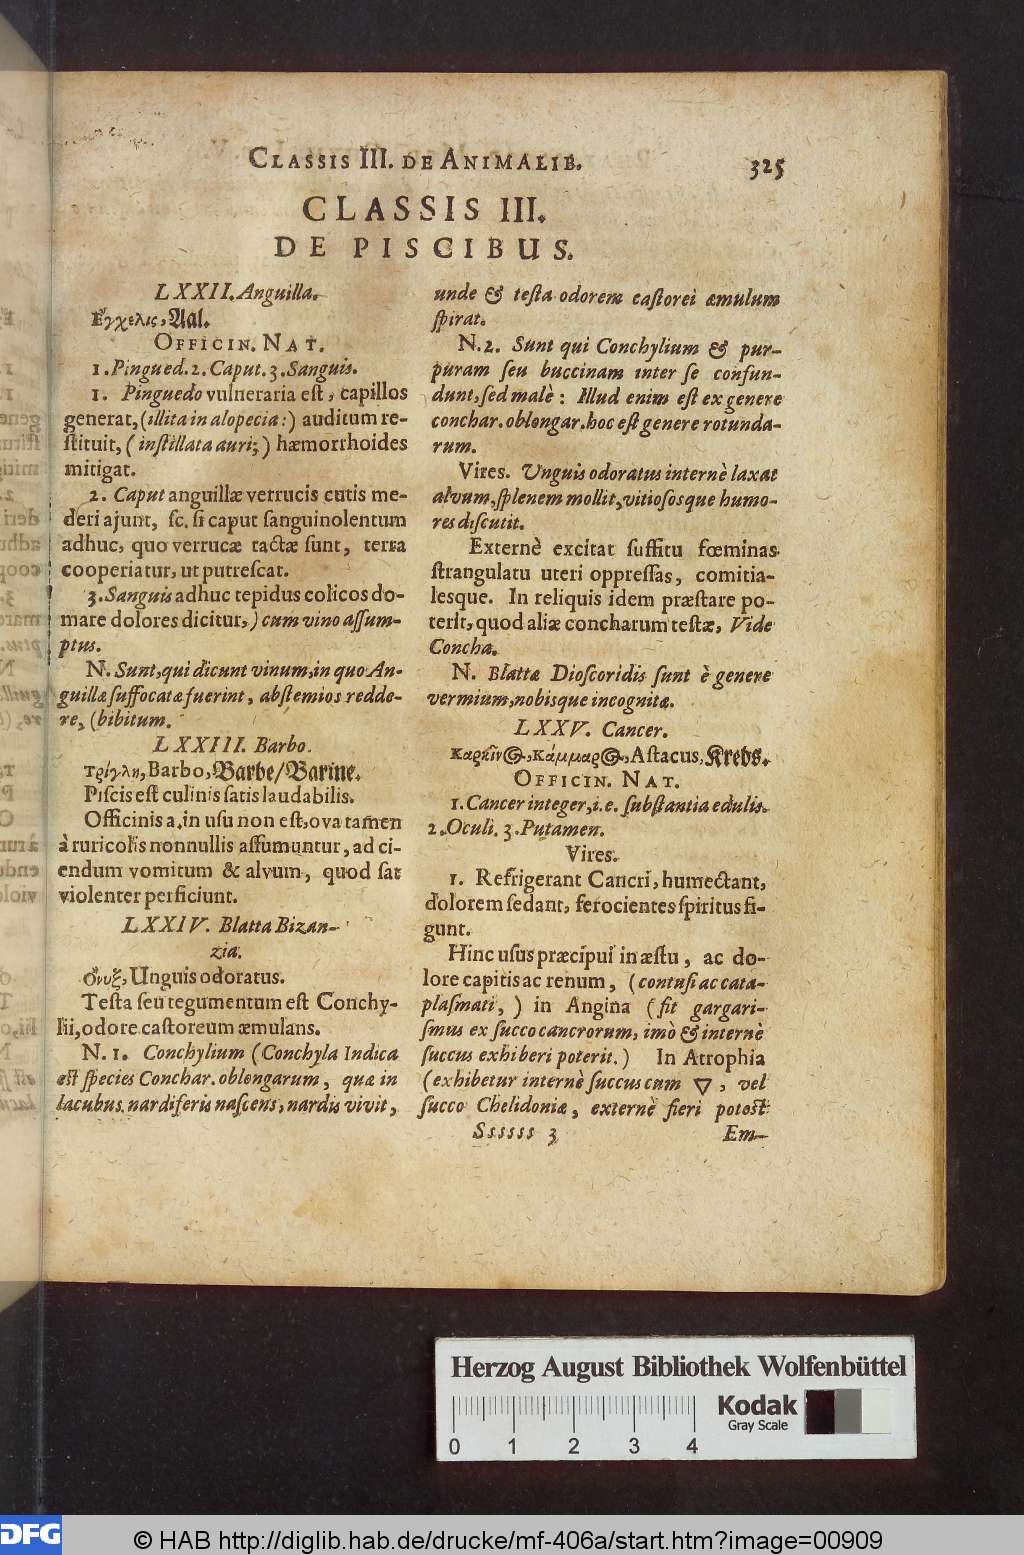 CLASSIS III. DE ANIMALIB. 325
CLASSIS III.
DE PISCIBUS.
LXXII. Anguilla.
Ἔγχελις, Aal.
OFFICIN. NAT.
1. Pingued. 2. Caput. 3. Sanguis.
1. Pinguedo vulneraria est, capillos
generat, (illita in alopecia:) auditum re-
stituit, (instillata auri;) hæmorrhoides
mitigat.
2. Caput anguillæ verrucis cutis me-
deri ajunt, sc. si caput sanguinolentum
adhuc, quo verrucæ tactæ sunt, terra
cooperiatur, ut putrescat.
3. Sanguis adhuc tepidus colicos do-
mare dolores dicitur,) cum vino assum-
ptus.
N. Sunt, qui dicunt vinum, in quo An-
guillæ suffocatæ fuerint, abstemios redde-
re, (bibitum.
LXXIII. Barbo.
τρίγλη, Barbo, Barbe/Barine.
Piscis est culinis satis laudabilis.
Officinis a. in usu non est, ova tamen
à ruricolis nonnullis assumuntur, ad ci-
endum vomitum & alvum, quod sat
violenter perficiunt.
LXXIV. Blatta Bizan-
zia.
Ὄνυξ, Unguis odoratus.
Testa seu tegumentum est Conchy-
lii, odore castoreum æmulans.
N. 1. Conchylium (Conchyla Indica
est species Conchar. oblongarum, quæ in
lacubus nardiferis nascens, nardis vivit,
unde & testa odorem castorei æmulum
spirat.
N. 2. Sunt qui Conchylium & pur-
puram seu buccinam inter se confun-
dunt, sed malè: Illud enim est ex genere
conchar. oblongar. hoc est genere rotunda-
rum.
Vires. Unguis odoratus internè laxat
alvum, splenem mollit, vitiososque humo-
res discutit.
Externè excitat suffitu fœminas
strangulatu uteri oppressas, comitia-
lesque. In reliquis idem præstare po-
terit, quod aliæ concharum testæ, Vide
Concha.
N. Blattæ Dioscoridis sunt è genere
vermium, nobisque incognitæ.
LXXV. Cancer.
Καρκῖνος, Κάμμαρος, Astacus, Krebs.
OFFICIN. NAT.
1. Cancer integer, i.e. substantia edulis.
2. Oculi. 3. Putamen.
Vires.
1. Refrigerant Cancri, humectant,
dolorem sedant, ferocientes spiritus fi-
gunt.
Hinc usus præcipui in æstu, ac do-
lore capitis ac renum, (contusi ac cata-
plasmati,) in Angina (fit gargari-
smus ex succo cancrorum, imò & internè
succus exhiberi poterit.) In Atrophia
(exhibetur internè succus cum 🜄, vel
succo Chelidoniæ, externè fieri potest
Ssssss 3 Em-
Herzog August Bibliothek Wolfenbüttel
Kodak
Gray Scale
0 1 2 3 4
DFG © HAB http://diglib.hab.de/drucke/mf-406a/start.htm?image=00909